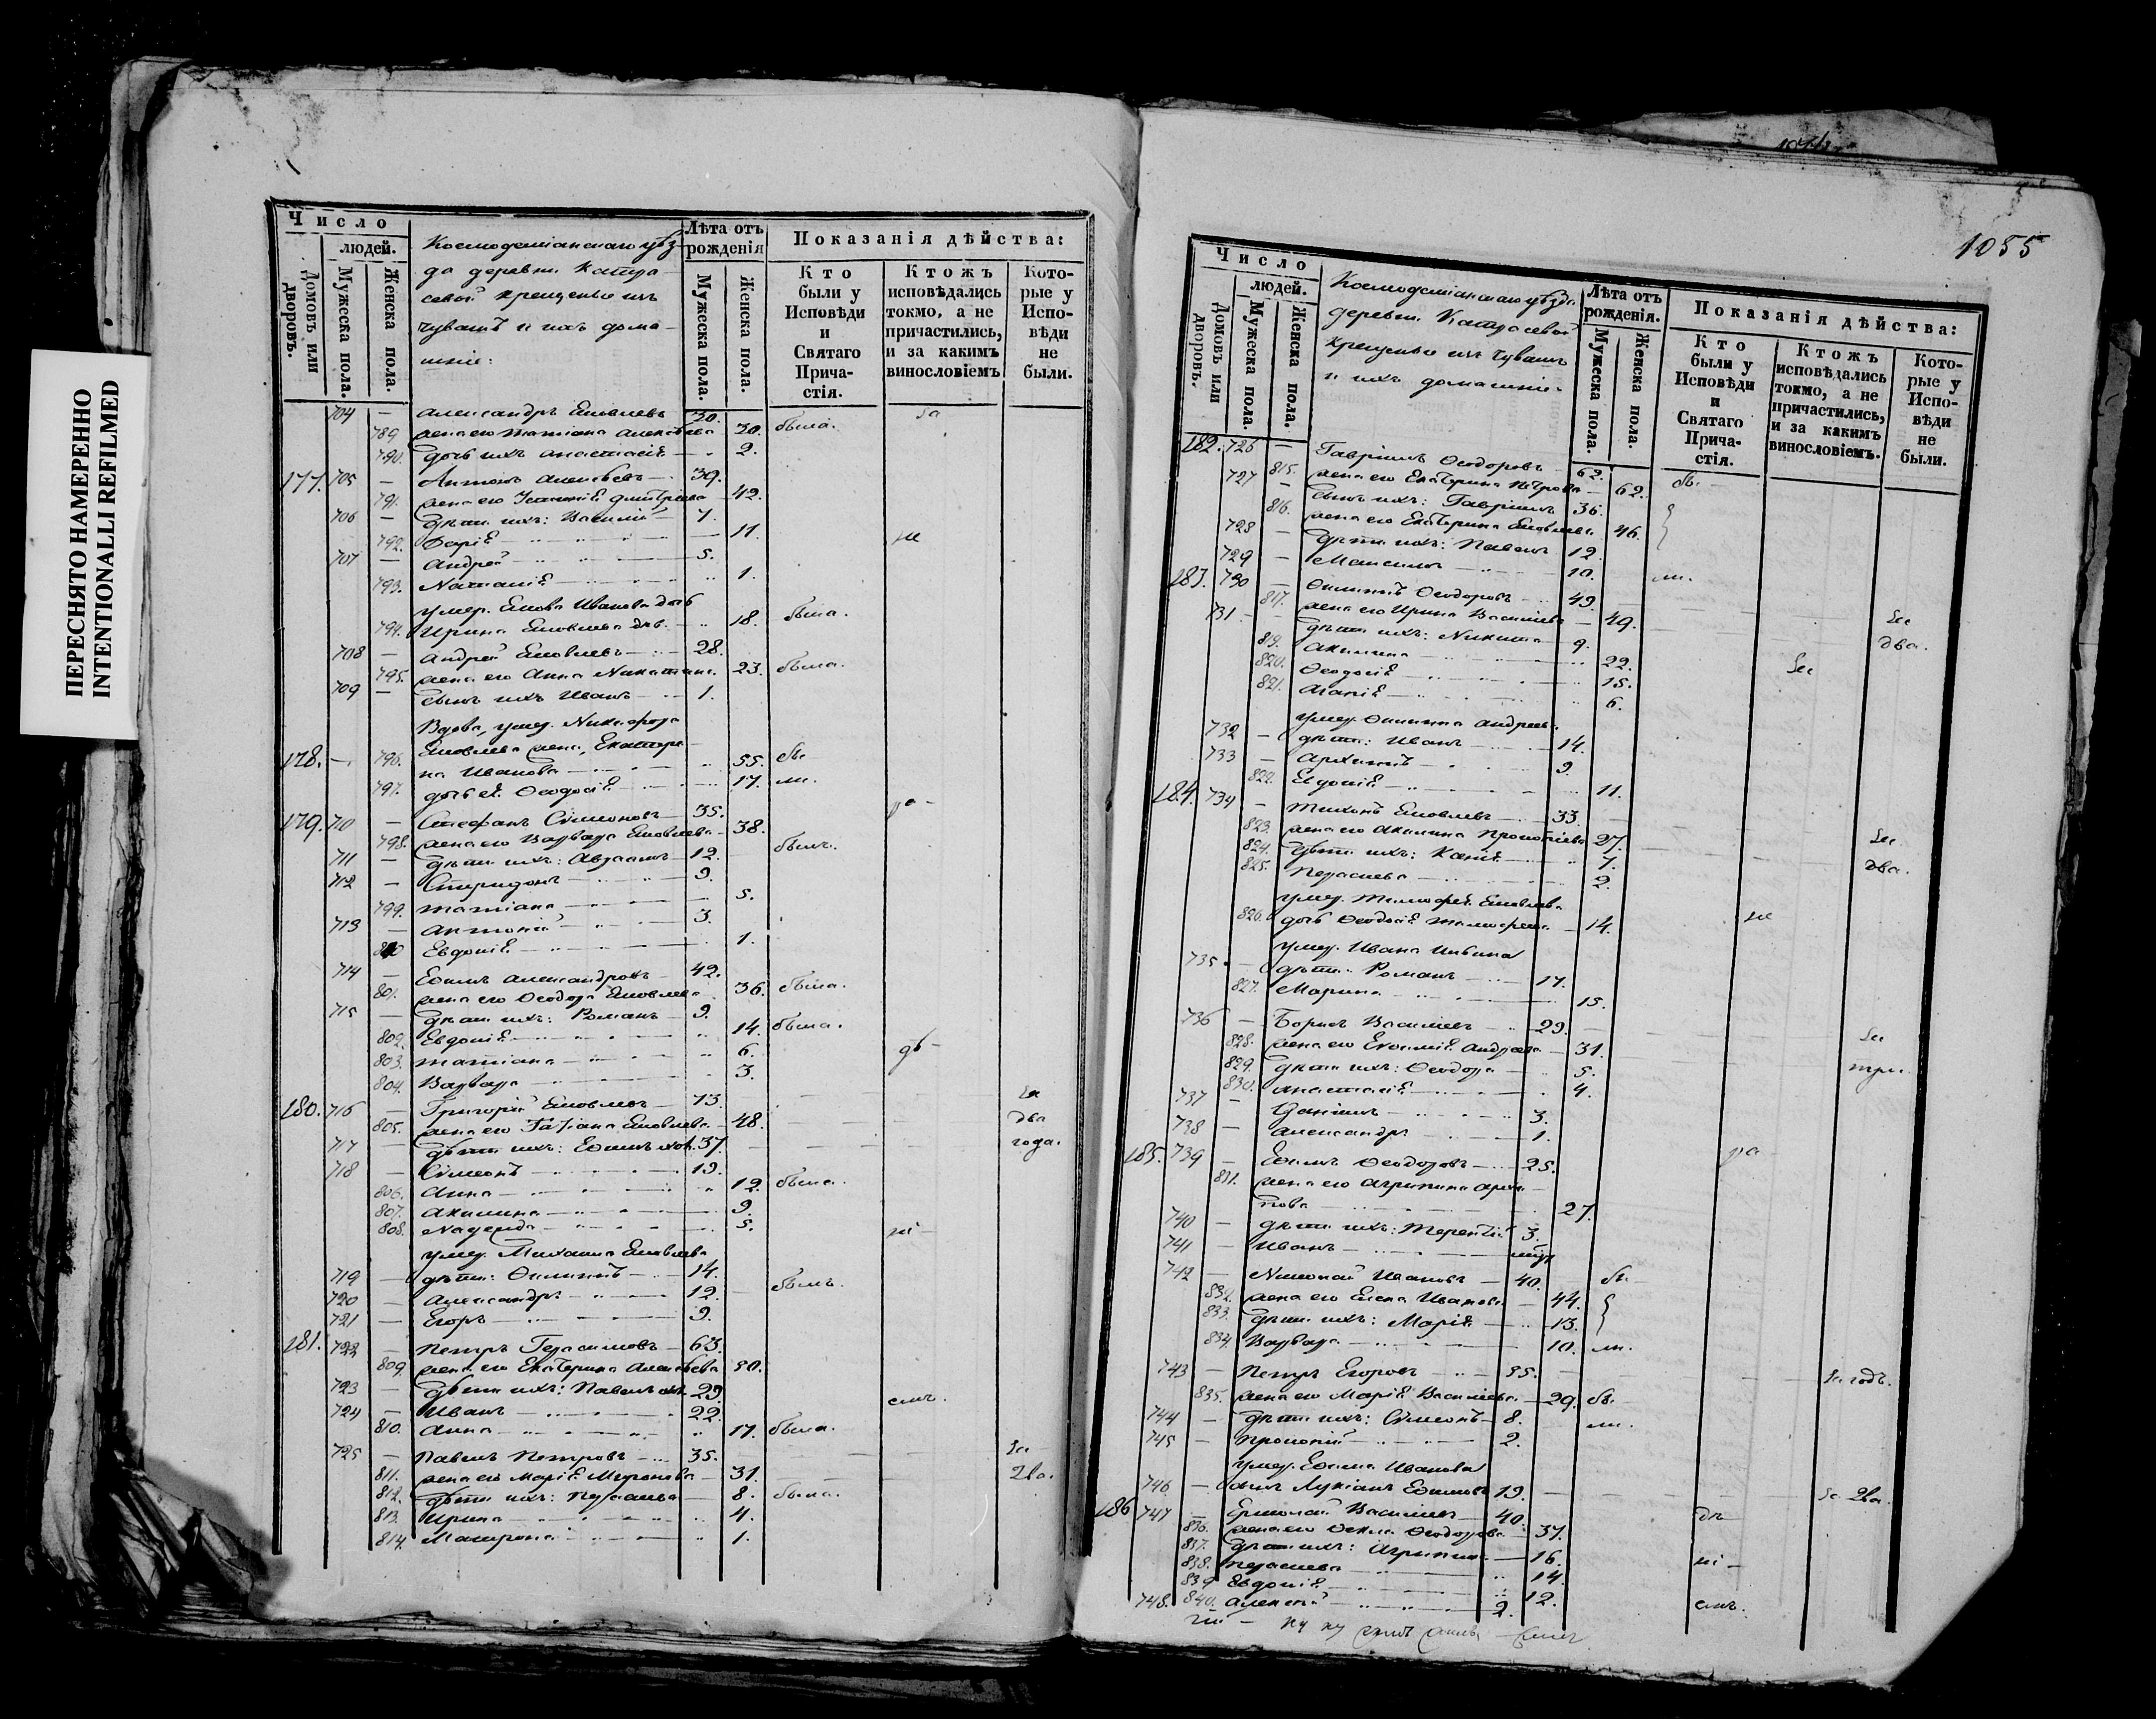 ПЕРЕСНЯТО НАМЕРЕННО
INTENTIONALLI REFILMED
Число
людей.
Домовъ или дворовъ.
Мужеска пола.
Женска пола.
Космодемianскаго уѣз-
да деревни Катра-
севой крещеные изъ
чувашъ и ихъ дома-
шніе:
Лѣта отъ рожденія
Мужеска пола.
Женска пола.
Показанія дѣйства:
Кто были у Исповѣди и Святаго Прича-стія.
Ктожъ исповѣдались токмо, а не причастились, и за какимъ винословіемъ
Кото-рые у Испо-вѣди не были.
704 — Александръ Яковлевъ 30.
789 жена его Татіана Алексѣева 30. была.
790. дочь ихъ Анастасія 2.
177. 705 — Антонъ Алексѣевъ 39.
791. жена его Дмитріева 42.
706 — дѣти ихъ: Василій 7.
792. Дарія 11.
707 — Андрей 5.
793. Наталія 1.
умер. Якова Иванова дочь
794. Ирина Яковлева 18. была.
708 — Андрей Яковлевъ 28.
795. жена его Анна 23. была.
709 — сынъ ихъ Иванъ 1.
Вдова, умер. Никифора
178. — 796. Яковлева жена, Екатери-
на Иванова 55. бы-
797. дочь ея Ѳеодосія 17. ли.
179. 710 — Стефанъ Сѵмеоновъ 35.
798. жена его Варвара Яковлева 38.
711 — дѣти ихъ: Авраамъ 12. былъ.
712 — Спиридонъ 9.
799. Татіана 5.
713 — Антоній 3.
800 Евдокія 1.
714 — Ефимъ Александровъ 42.
801. жена его Ѳеодора Яковлева 36. была.
715 — дѣти ихъ: Романъ 9.
802. Евдокія 14. была.
803. Татіана 6.
804. Варвара 3.
180. 716 — Григорій Яковлевъ 73. за
805. жена его Татіана Яковлева 48. два
717 — дѣти ихъ: Ефимъ 37. года.
718 — Сѵмеонъ 19.
806. Анна 12. была.
807. Акилина 9.
808. Надежда 5.
умер. Михаила Яковлева
719 — дѣти: Филиппъ 14.
720 — Александръ 12. былъ.
721 — Егоръ 9.
181. 722 — Петръ Герасимовъ 63.
809. жена его Екатерина Алексѣева 80.
723 — дѣти ихъ: Павелъ 29.
724 — Иванъ 22.
810. Анна 17. была.
725 — Павелъ Петровъ 35. за
811. жена его Марія Миронова 31. два.
812. дѣти ихъ: Параскева 8. была.
813. Ирина 4.
814. Матрона 1.
1055
Число
людей.
Домовъ или дворовъ.
Мужеска пола.
Женска пола.
Космодемianскаго уѣзда
деревни Катрасевой
крещеные изъ чувашъ
и ихъ домашніе.
Лѣта отъ рожденія.
Мужеска пола.
Женска пола.
Показанія дѣйства:
Кто были у Исповѣди и Святаго Прича-стія.
Ктожъ исповѣдались токмо, а не причастились, и за какимъ винословіемъ.
Кото-рые у Испо-вѣди не были.
182. 726 — Гавріилъ Ѳеодоровъ 62.
815. жена его Екатерина Петрова 62. бы-
727 — сынъ ихъ: Гавріилъ 36.
816. жена его Екатерина Яковлева 46.
728 — дѣти ихъ: Павелъ 12.
729 — Максимъ 10. ли.
183. 730 — Филиппъ Ѳеодоровъ 49.
817. жена его Ирина Василіева 49. за
731 — дѣти ихъ: Никита 9. два.
819. Акилина 22.
820. Ѳеодосія 15.
821. Агапія 6.
умер. Филиппа Андреева
732 — дѣти: Иванъ 14.
733 — Архиппъ 9.
822. Евдокія 11.
184. 734 — Тихонъ Яковлевъ 33.
823. жена его Акилина Прокопіева 27. за
824. дѣти ихъ: 7. два.
825. Параскева 2.
умер. Тимофея Яковлева
826. дочь Ѳеодосія Тимофеева 14.
умер. Ивана
735 — дѣти: Романъ 17.
827. Марина 15.
736 — Борисъ Василіевъ 29. за
828. жена его Евфимія Андреева 31. три.
829. дѣти ихъ: Ѳеодора 5.
830. Анастасія 4.
737 — Даніилъ 3.
738 — Александръ 1.
185. 739 — Ефимъ Ѳеодоровъ 25.
831. жена его Агрипина Архи-
пова 27.
740 — дѣти ихъ: Терентій 3.
741 — Иванъ
742 — Николай Ивановъ 40. бы-
832. жена его Елена Иванова 44.
833. дѣти ихъ: Марія 13.
834. Варвара 10. ли.
743 — Петръ Егоровъ 35. за годъ.
835. жена его Марія Василіева 29. бы-
744 — дѣти ихъ: Сѵмеонъ 8. ли.
745 — Прокопій 2.
умер. Ефима Иванова
746 — сынъ Лукіанъ Ефимовъ 19. за два.
186 747 — Ермолай Василіевъ 40.
836. жена его Ѳекла Ѳеодорова 37.
837. дѣти ихъ: Агрипина 16.
838. Параскева 14.
839 Евдокія 12.
748. 840. Алексѣй 2.